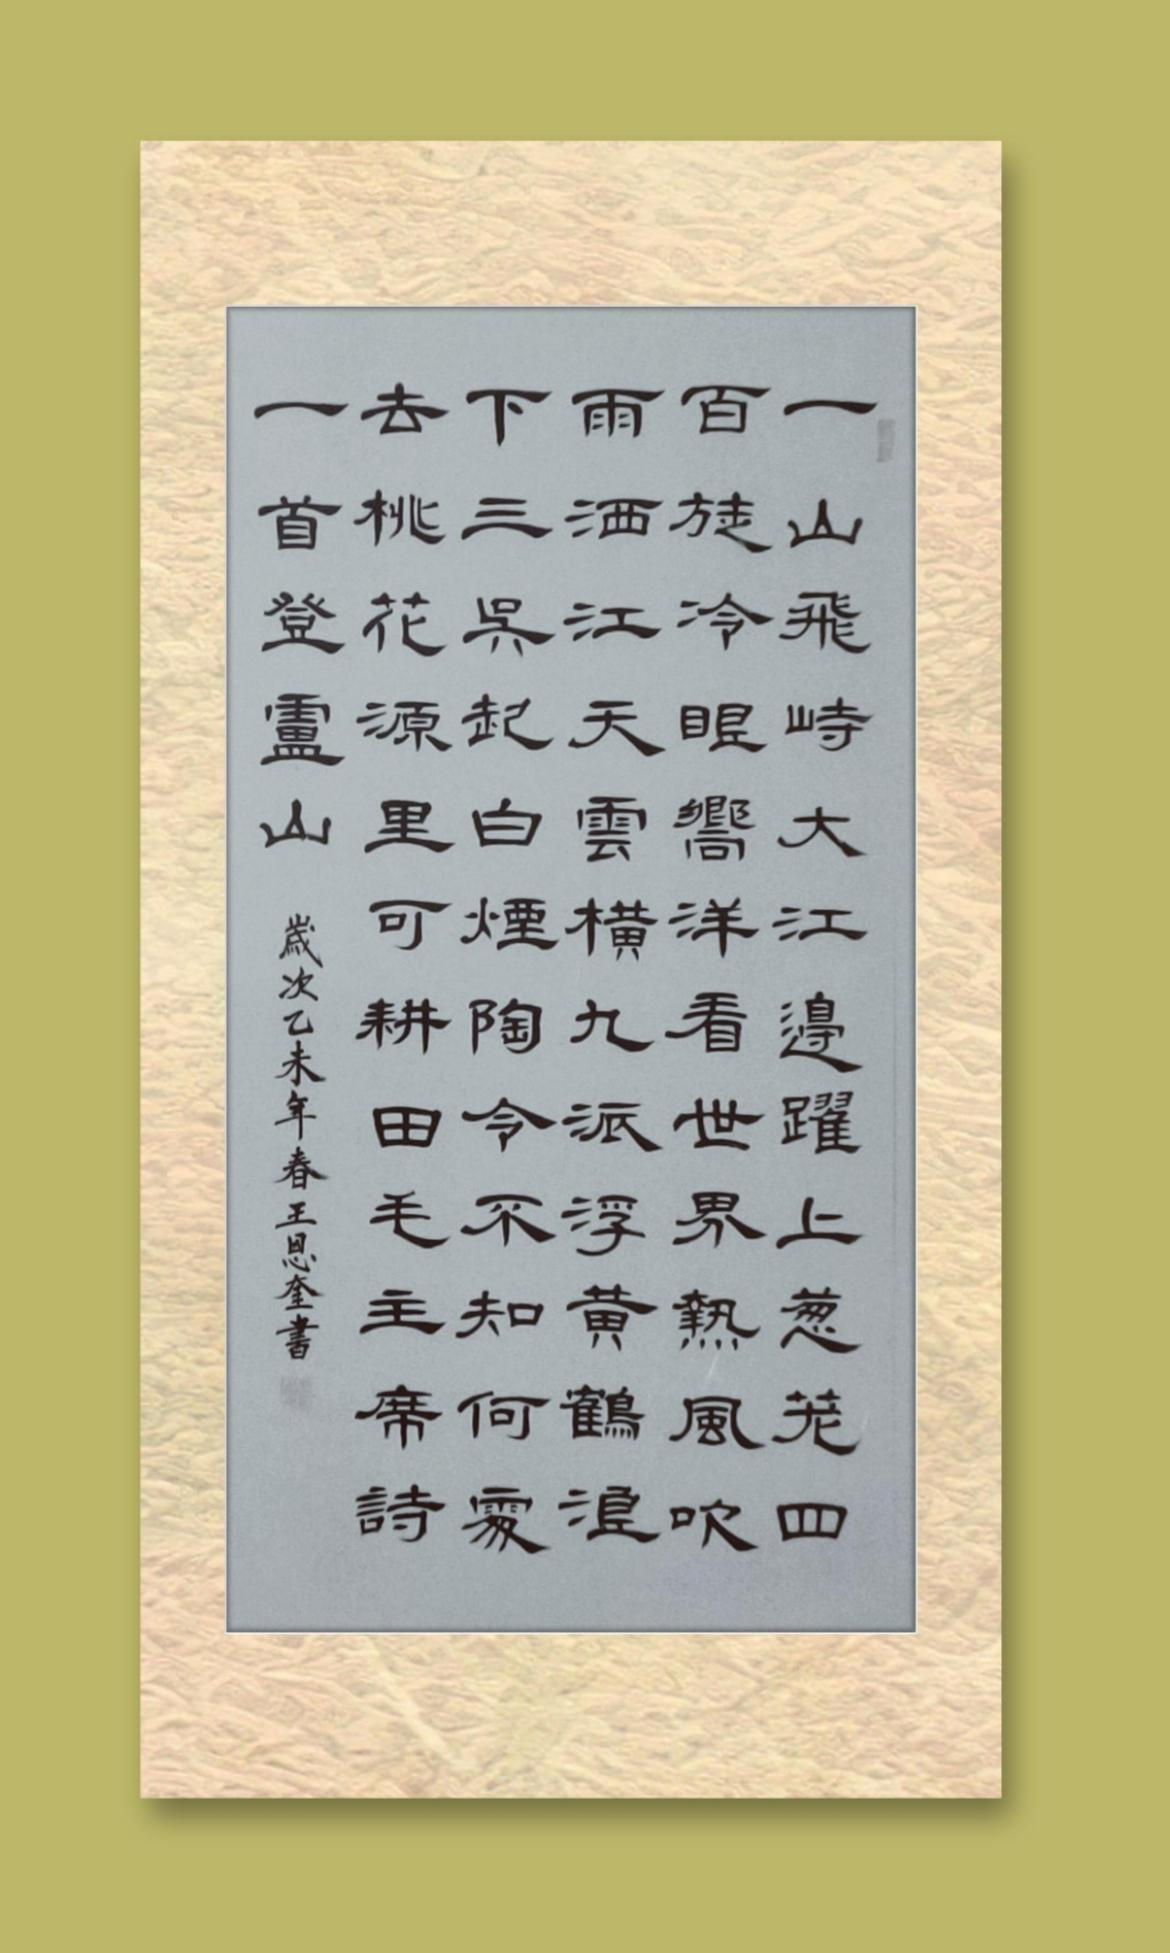 一山飛峙大江邊躍上葱茏四
百旋冷眼嚮洋看世界熱風吹
雨洒江天雲橫九派浮黄鶴浪
下三吳起白煙陶令不知何處
去桃花源里可耕田毛主席詩
一首登盧山
歲次乙未年春王恩奎書